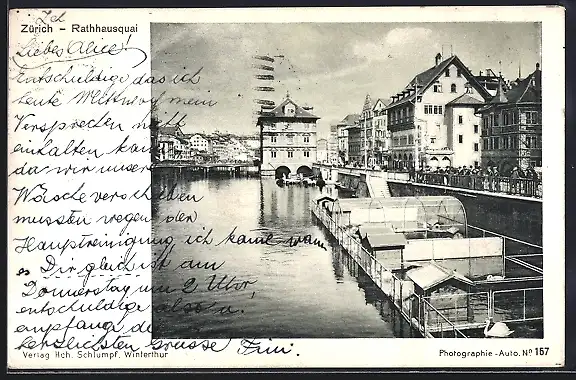 Zürich – Rathhausquai
Liebes Alice!
Entschuldige das ich
heute Mittwoch mein
Versprechen nicht
einhalten kann
da wir unsere
Wäsche verschieben
mussten wegen der
Hauptreinigung ich kame wann
es Dir gleich ist am
Donnerstag um 2 Uhr,
entschuldige also u.
empfange die
herzlichsten Grüsse
Verlag Hch. Schlumpf, Winterthur
Photographie-Auto. Nº 157